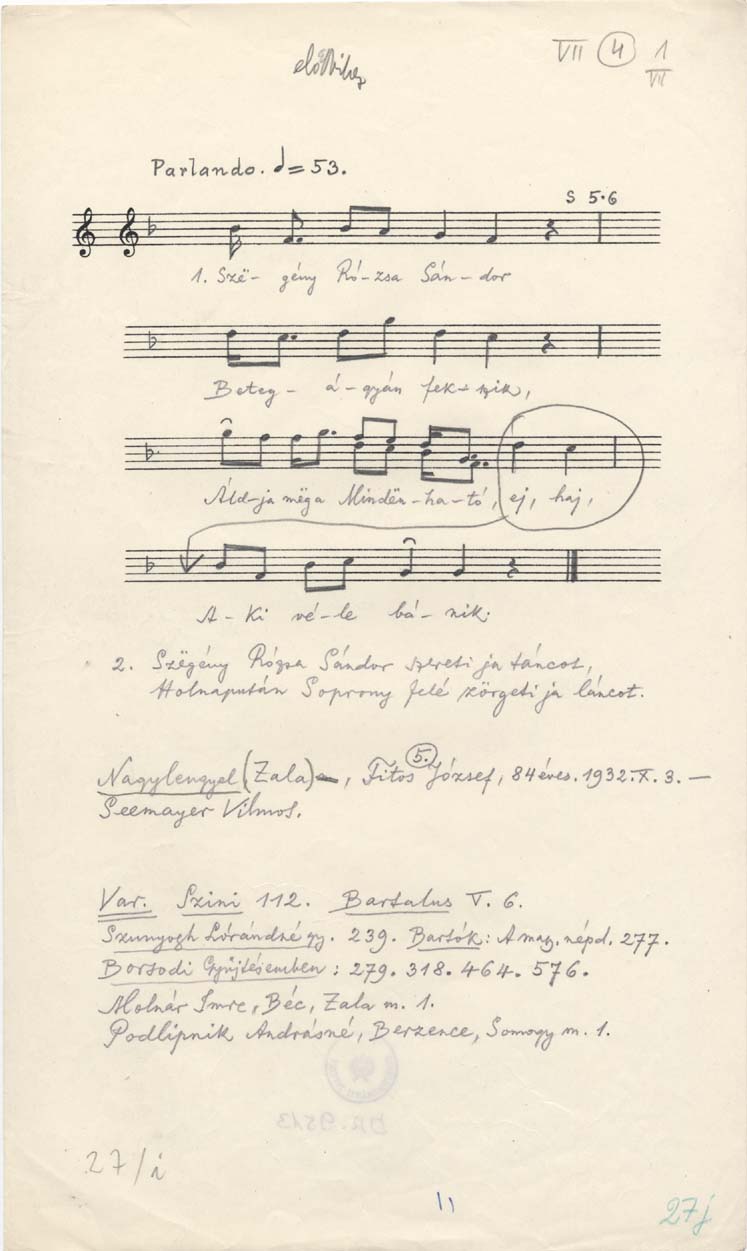 VII 4 1
VII
Parlando. = 53.
S 5·6
1. Szë- gény Ró-zsa Sán- dor
Beteg- á-gyán fek-szik,
Áld-ja mëga Mindën-ha-tó, ej, haj,
A-ki vé-le bá-nik.
2. Szëgény Rózsa Sándor szereti ja táncot,
Holnapután Soprony felé zörgeti ja láncot.
5.
Nagylengyel (Zala), Fitos József, 84 éves. 1932. X. 3. —
Seemayer Vilmos.
Var. Szini 112. Bartalus V. 6.
Szunyogh Lórándné gy. 239. Bartók: A mag. népd. 277.
Borsodi Gyűjtésemben: 279. 318. 464. 576.
Molnár Imre, Béc, Zala m. 1.
Podlipnik Andrásné, Berzence, Somogy m. 1.
27/i
11
27j